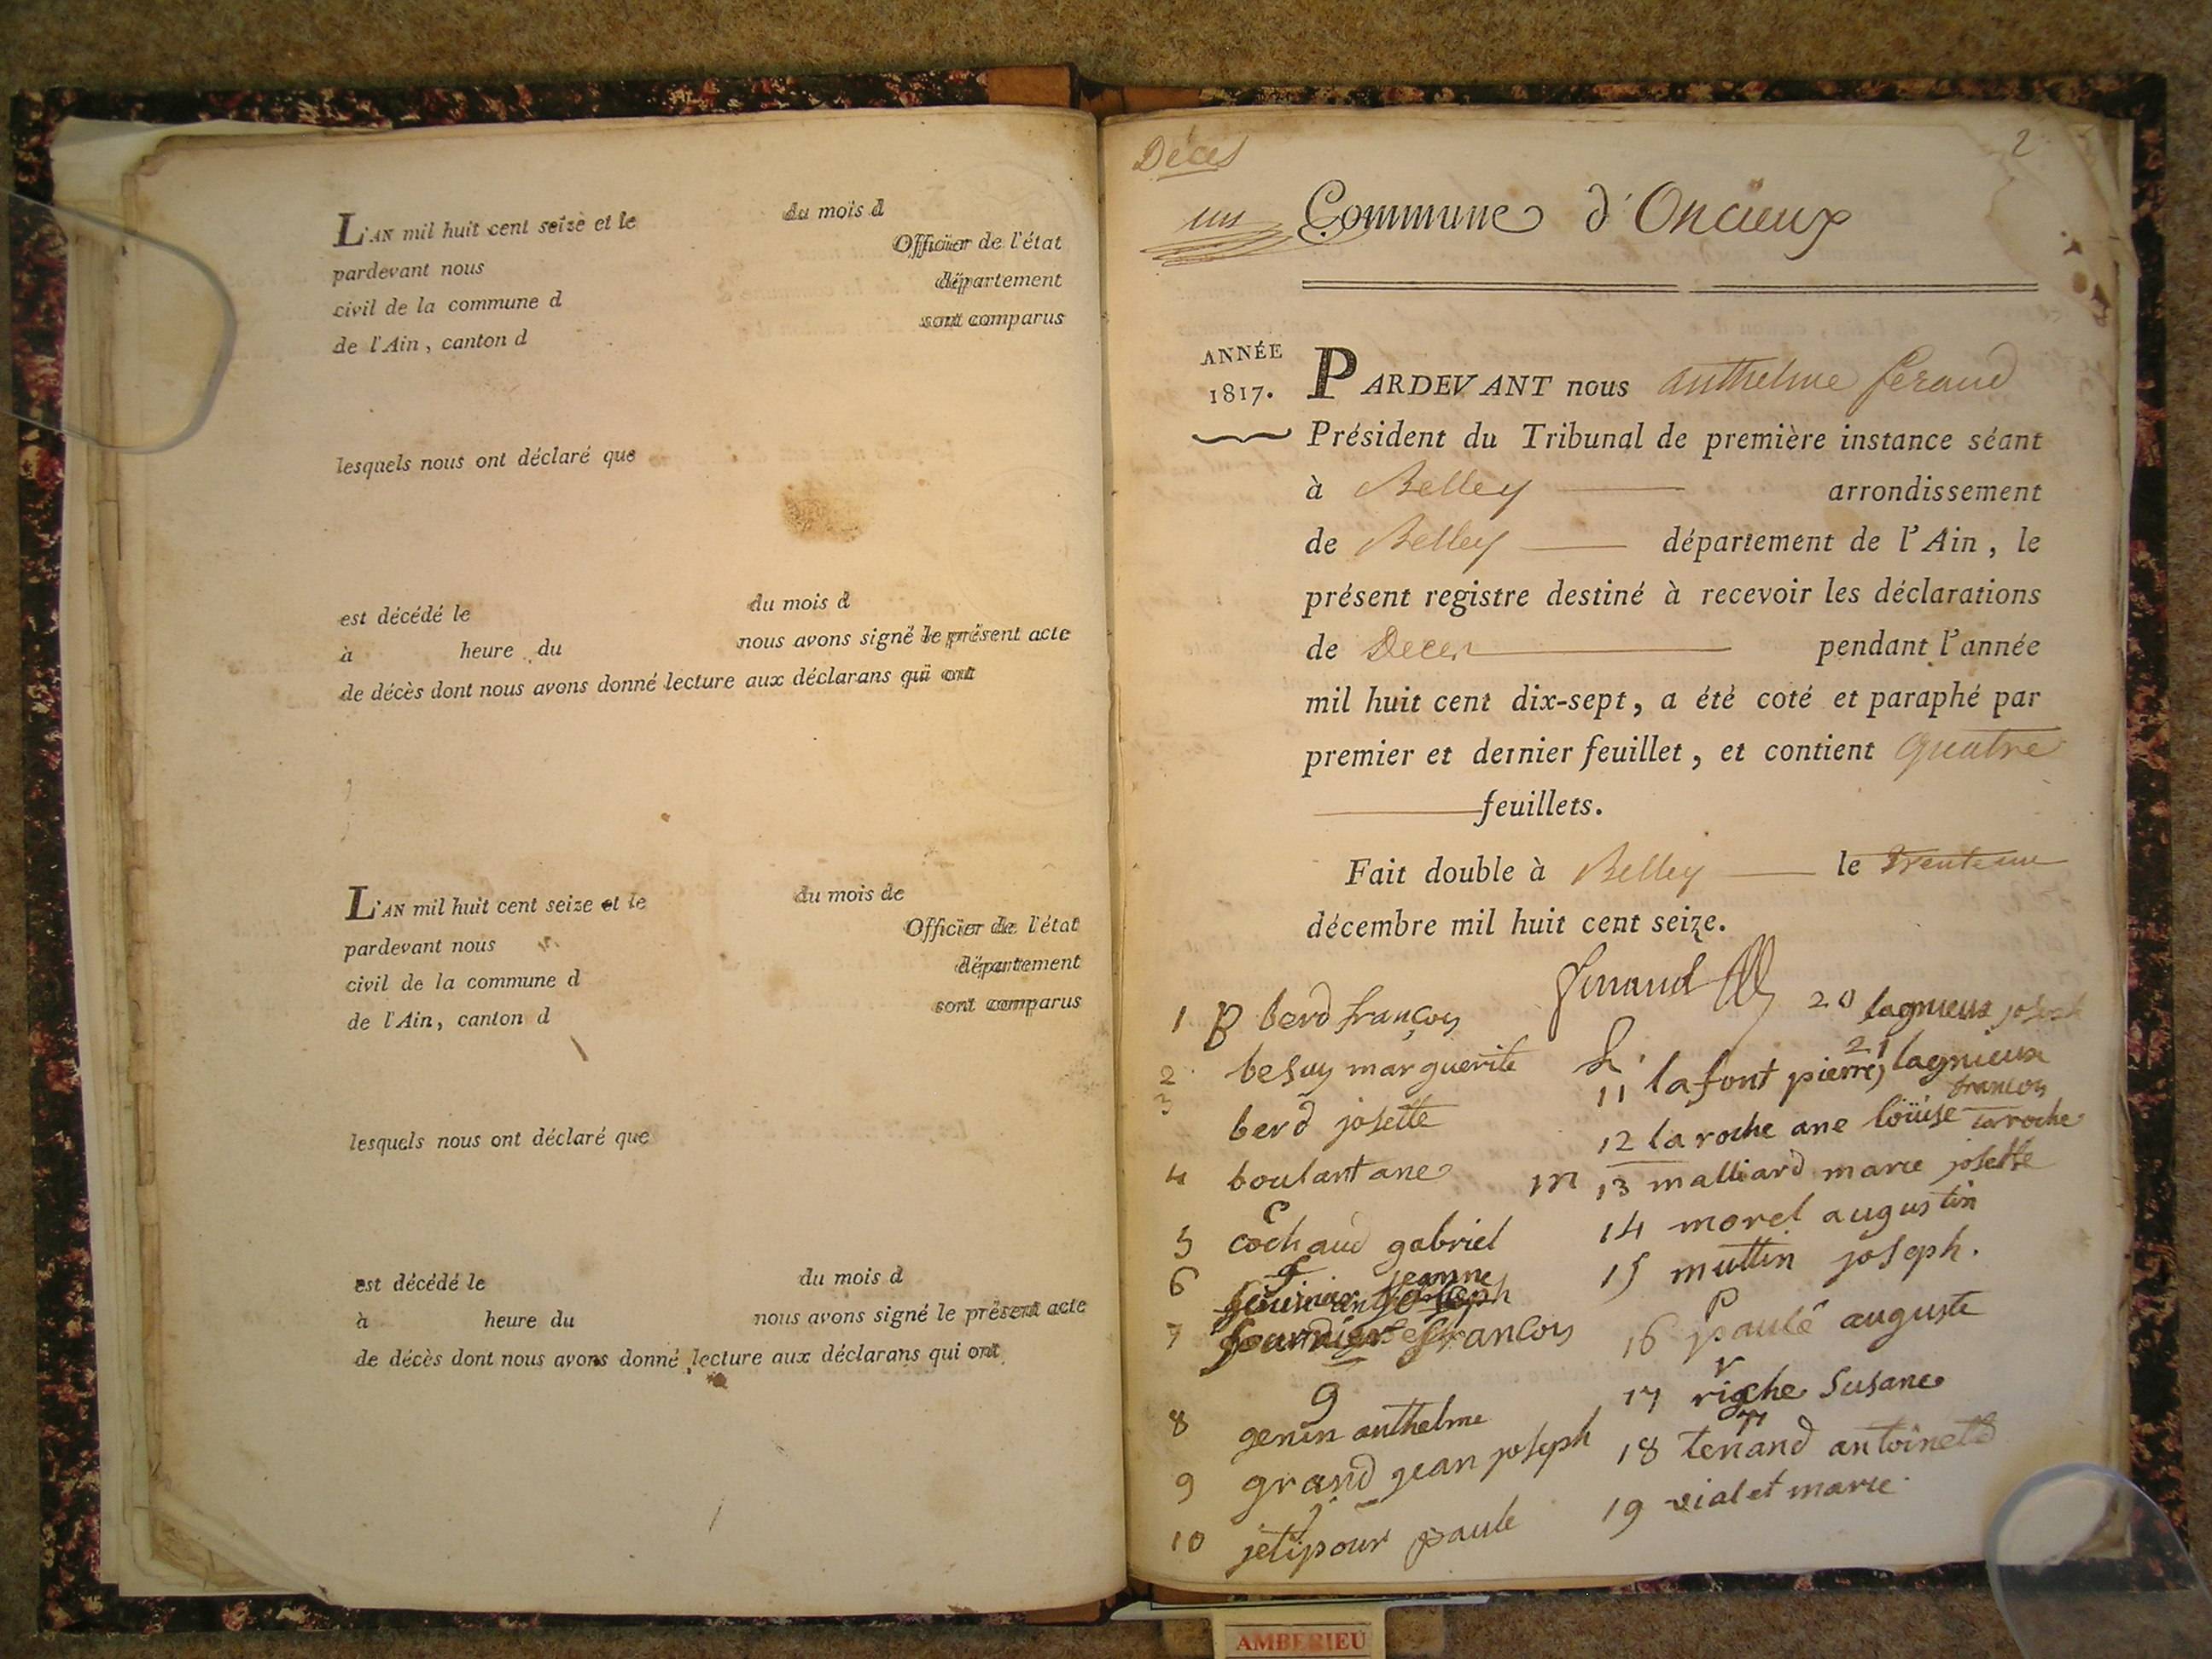 L'AN mil huit cent seize et le du mois d
pardevant nous Officier de l'état
civil de la commune d département
de l'Ain, canton d sont comparus
lesquels nous ont déclaré que
est décédé le du mois d
à heure du nous avons signé le présent acte
de décès dont nous avons donné lecture aux déclarans qui ont
L'AN mil huit cent seize et le du mois de
pardevant nous Officier de l'état
civil de la commune d département
de l'Ain, canton d sont comparus
lesquels nous ont déclaré que
est décédé le du mois d
à heure du nous avons signé le présent acte
de décès dont nous avons donné lecture aux déclarans qui ont
Décès
2
un
Commune d'Oncieux
ANNÉE
1817.
PARDEVANT nous anthelme feraud
Président du Tribunal de première instance séant
à Belley arrondissement
de Belley département de l'Ain, le
présent registre destiné à recevoir les déclarations
de Deces pendant l'année
mil huit cent dix-sept, a été coté et paraphé par
premier et dernier feuillet, et contient quatre
feuillets.
Fait double à Belley le trente un
décembre mil huit cent seize.
1 B berd françois
2 besuy marguerite
3 berd josette
4 boulant ane
C
5 cochaud gabriel
6 jeanne
7 francois
g
8 genin anthelme
9 grand jean joseph
j
10 jetipour paule
20 lagnieux joseph
21 lagnieux
francois
11 lafont pierre
12 la roche ane loüise laroche
m 13 malliard marie josette
14 morel augustin
15 muttin joseph.
P
16 paulé auguste
r
17 riche susane
18 tenand antoinette
19 vialet marie
AMBERIEU